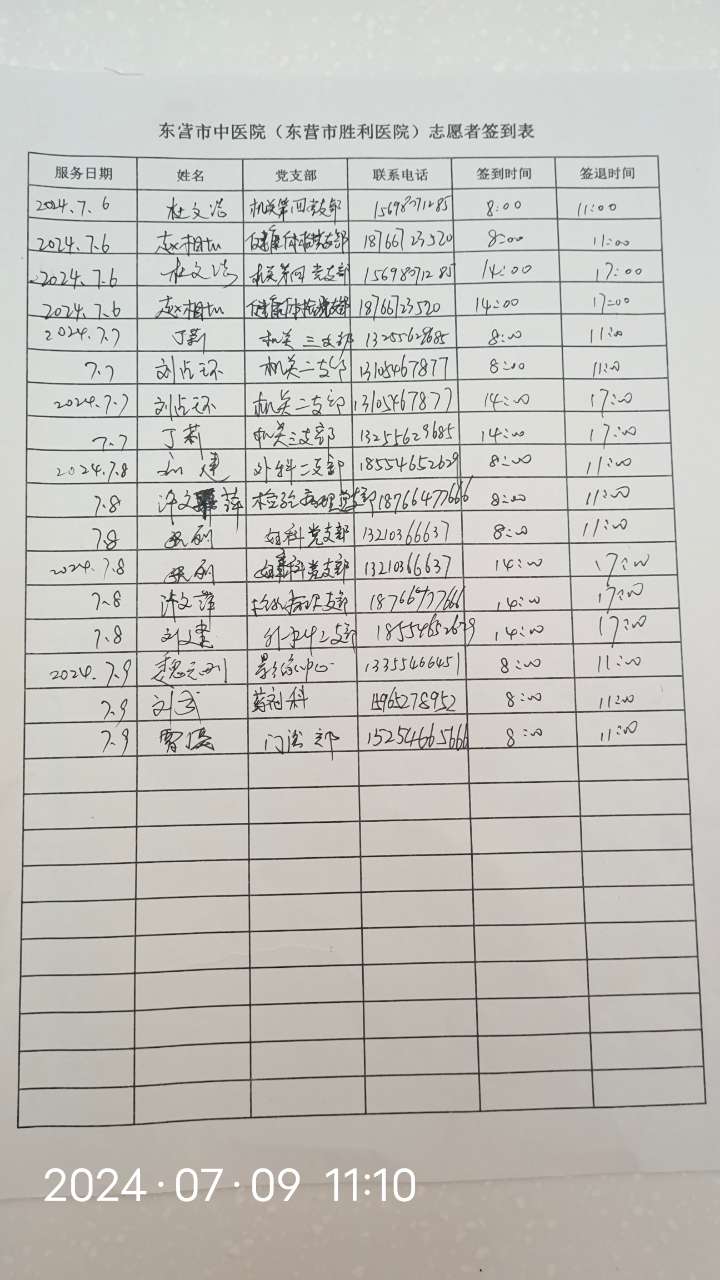 东营市中医院（东营市胜利医院）志愿者签到表
服务日期 姓名 党支部 联系电话 签到时间 签退时间
2024.7.6 杜文浩 机关第四党支部 15698071285 8:00 11:00
2024.7.6 赵相 健康体检党支部 18766723520 8:00 11:00
2024.7.6 杜文浩 机关第四党支部 15698071285 14:00 17:00
2024.7.6 赵相 健康体检党支部 18766723520 14:00 17:00
2024.7.7 丁莉 机关三支部 13255629685 8:00 11:00
7.7 刘 机关二支部 13105467877 8:00 11:00
2024.7.7 刘 机关二支部 13105467877 14:00 17:00
7.7 丁莉 机关三支部 13255629685 14:00 17:00
2024.7.8 建 外科二支部 18554652629 8:00 11:00
7.8 许文萍 检验病理党支部 18766477666 8:00 11:00
7.8 妇科党支部 13210366637 8:00 11:00
2024.7.8 妇科党支部 13210366637 14:00 17:00
7.8 许文萍 支部 18766477666 14:00 17:00
7.8 刘建 外科二支部 18554652629 14:00 17:00
2024.7.9 魏 影像中心 13355466451 8:00 11:00
7.9 刘武 药剂科 15965278952 8:00 11:00
7.9 曹 门诊部 15254665666 8:00 11:00
2024·07·09 11:10